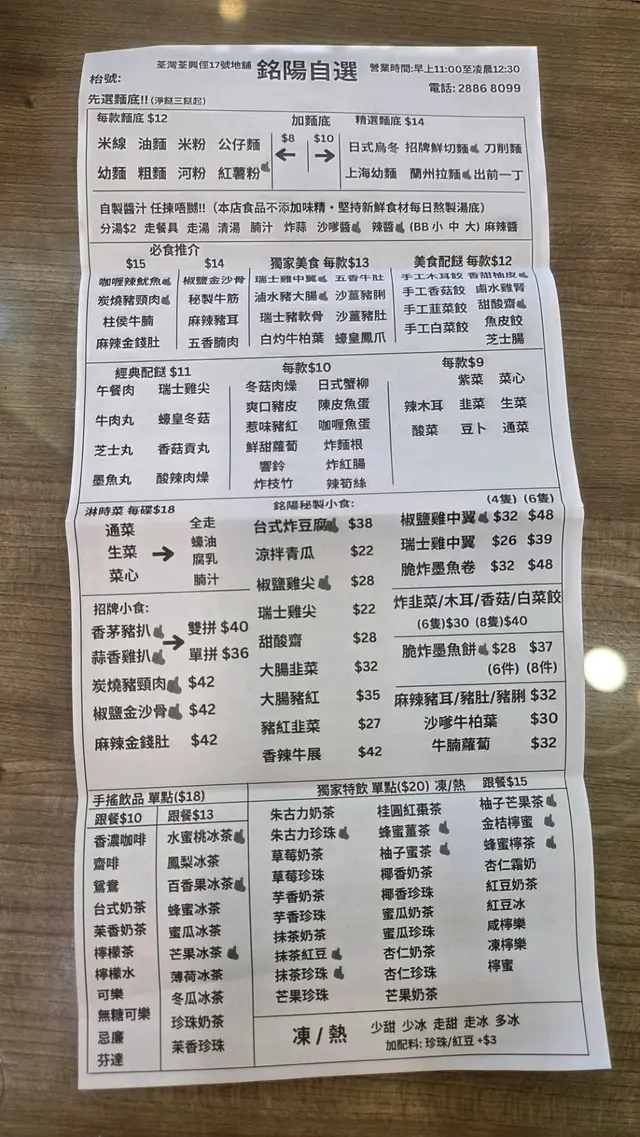 荃灣荃興徑17號地舖 銘陽自選 營業時間:早上11:00至凌晨12:30
枱號:
電話: 2886 8099
先選麵底!! (淨餸三餸起)
每款麵底 $12 加麵底 精選麵底 $14
米線 油麵 米粉 公仔麵 $8 $10 日式烏冬 招牌鮮切麵 刀削麵
幼麵 粗麵 河粉 紅薯粉 上海幼麵 蘭州拉麵 出前一丁
自製醬汁 任揀唔嬲!! (本店食品不添加味精・堅持新鮮食材每日熬製湯底)
分湯$2 走餐具 走湯 清湯 腩汁 炸蒜 沙嗲醬 辣醬 (BB 小 中 大) 麻辣醬
必食推介 獨家美食 每款$13 美食配餸 每款$12
$15 $14
咖喱辣魷魚 椒鹽金沙骨 瑞士雞中翼 五香牛肚 手工木耳餃 香甜柚皮
炭燒豬頸肉 秘製牛筋 滷水豬大腸 沙薑豬脷 手工香菇餃 鹵水雞腎
柱侯牛腩 麻辣豬耳 瑞士豬軟骨 沙薑豬肚 手工韮菜餃 甜酸齋
麻辣金錢肚 五香腩肉 白灼牛柏葉 蠔皇鳳爪 手工白菜餃 魚皮餃
芝士腸
經典配餸 $11 每款$10 每款$9
午餐肉 瑞士雞尖 冬菇肉燥 日式蟹柳 紫菜 菜心
牛肉丸 蠔皇冬菇 爽口豬皮 陳皮魚蛋 辣木耳 韭菜 生菜
惹味豬紅 咖喱魚蛋 酸菜 豆卜 通菜
芝士丸 香菇貢丸 鮮甜蘿蔔 炸麵根
墨魚丸 酸辣肉燥 響鈴 炸紅腸
炸枝竹 辣筍絲
淋時菜 每碟$18
通菜 全走
生菜 蠔油
菜心 腐乳
腩汁
招牌小食:
香茅豬扒 雙拼 $40
蒜香雞扒 單拼 $36
炭燒豬頸肉 $42
椒鹽金沙骨 $42
麻辣金錢肚 $42
銘陽秘製小食:
台式炸豆腐 $38
涼拌青瓜 $22
椒鹽雞尖 $28
瑞士雞尖 $22
甜酸齋 $28
大腸韭菜 $32
大腸豬紅 $35
豬紅韭菜 $27
香辣牛展 $42
(4隻) (6隻)
椒鹽雞中翼 $32 $48
瑞士雞中翼 $26 $39
脆炸墨魚卷 $32 $48
炸韭菜/木耳/香菇/白菜餃
(6隻)$30 (8隻)$40
脆炸墨魚餅 $28 $37
(6件) (8件)
麻辣豬耳/豬肚/豬脷 $32
沙嗲牛柏葉 $30
牛腩蘿蔔 $32
手搖飲品 單點($18)
跟餐$10 跟餐$13
香濃咖啡 水蜜桃冰茶
齋啡 鳳梨冰茶
鴛鴦 百香果冰茶
台式奶茶 蜂蜜冰茶
茉香奶茶 蜜瓜冰茶
檸檬茶 芒果冰茶
檸檬水 薄荷冰茶
可樂 冬瓜冰茶
無糖可樂 珍珠奶茶
忌廉 茉香珍珠
芬達
獨家特飲 單點($20) 凍/熱 跟餐$15
朱古力奶茶 桂圓紅棗茶 柚子芒果茶
朱古力珍珠 蜂蜜薑茶 金桔檸蜜
草莓奶茶 柚子蜜茶 蜂蜜檸茶
草莓珍珠 椰香奶茶 杏仁霜奶
芋香奶茶 椰香珍珠 紅豆奶茶
芋香珍珠 蜜瓜奶茶 紅豆冰
抹茶奶茶 蜜瓜珍珠 咸檸樂
抹茶紅豆 杏仁奶茶 凍檸樂
抹茶珍珠 杏仁珍珠 檸蜜
芒果珍珠 芒果奶茶
凍 / 熱 少甜 少冰 走甜 走冰 多冰
加配料: 珍珠/紅豆 +$3